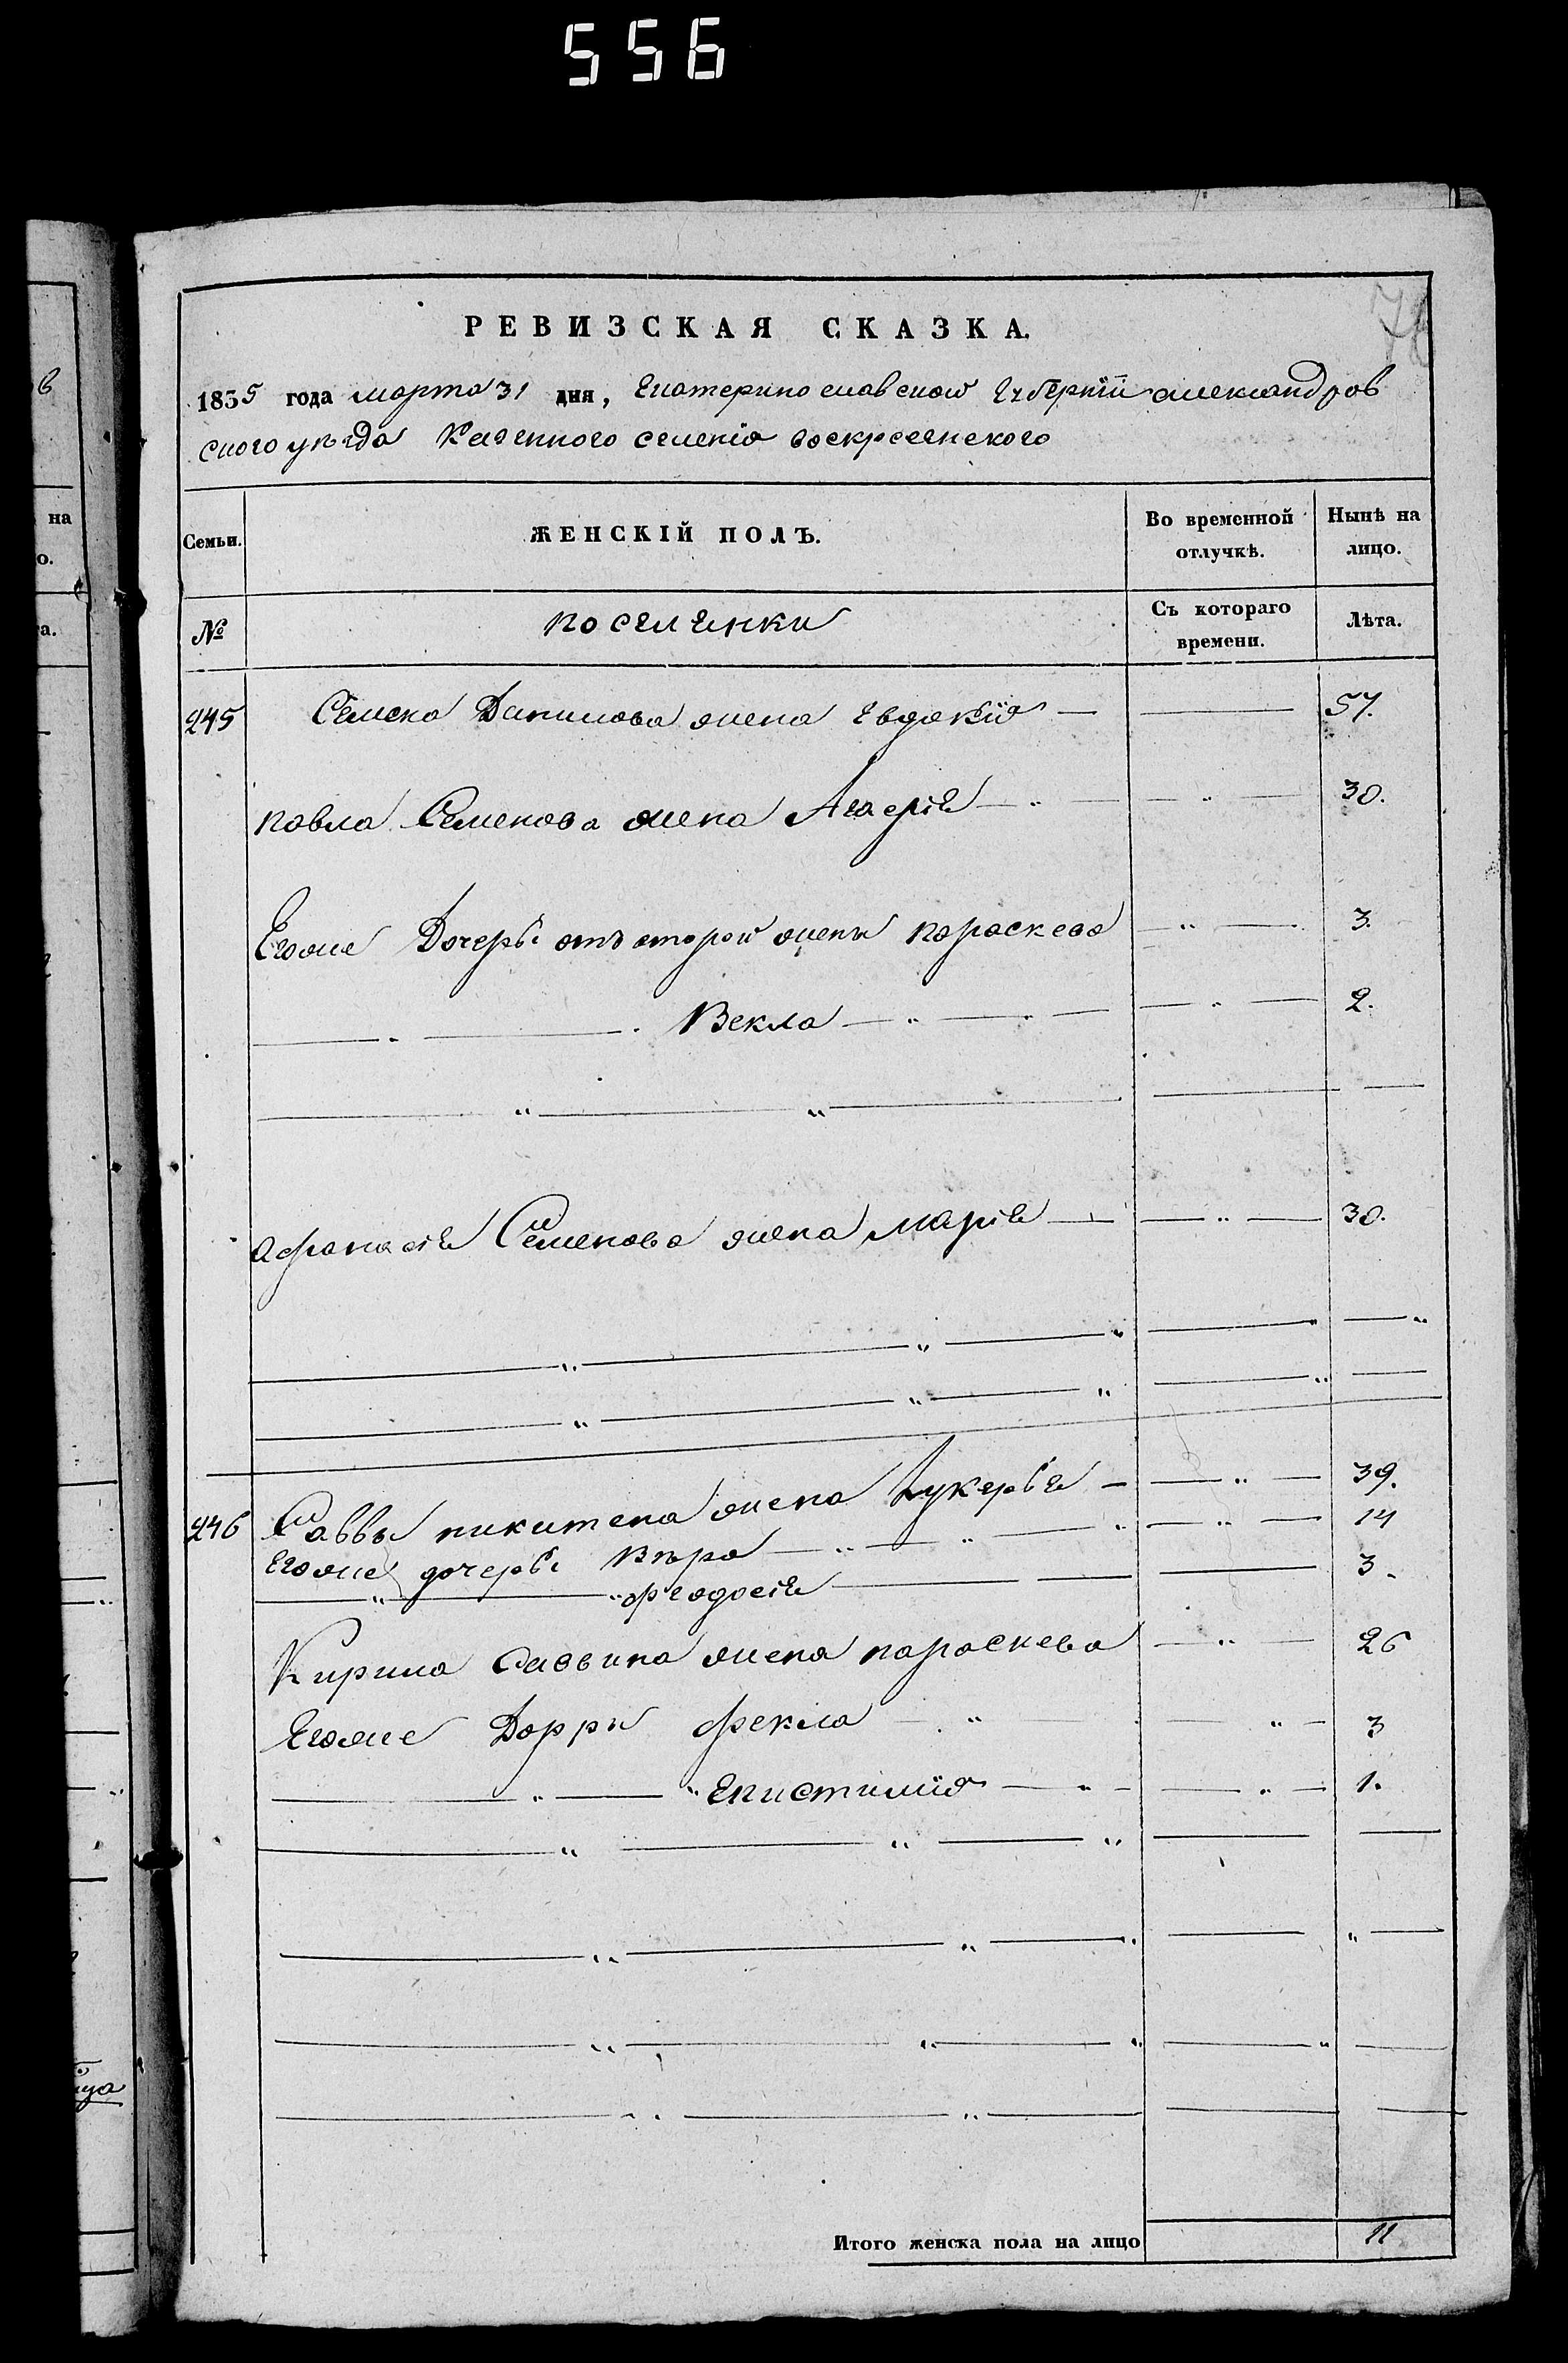 556
78
РЕВИЗСКАЯ СКАЗКА.
1835 года марта 31 дня, Екатеринославской Губернїй александров
ского уѣзда Казенного селенія воскресенского
Семьи.
ЖЕНСКІЙ ПОЛЪ.
Во временной отлучкѣ.
Нынѣ на лицо.
№
поселенки
Съ котораго времени.
Лѣта.
245 Семена Данилова жена Евдокїя 57.
павла Семенова жена 30.
Егоже Дочерьи отъ вторoй жены параскева 3.
Векла 2.
афанасія Семенова жена марія 30.
246 Саввы никитена жена Лукерья 39.
Егоже дочерьи Вѣра 14
феодосія 3.
Кирила Савина жена параскева 26
Егоже фекла 3
Епистимїя 1.
Итого женска пола на лицо 11
на
о.
а.